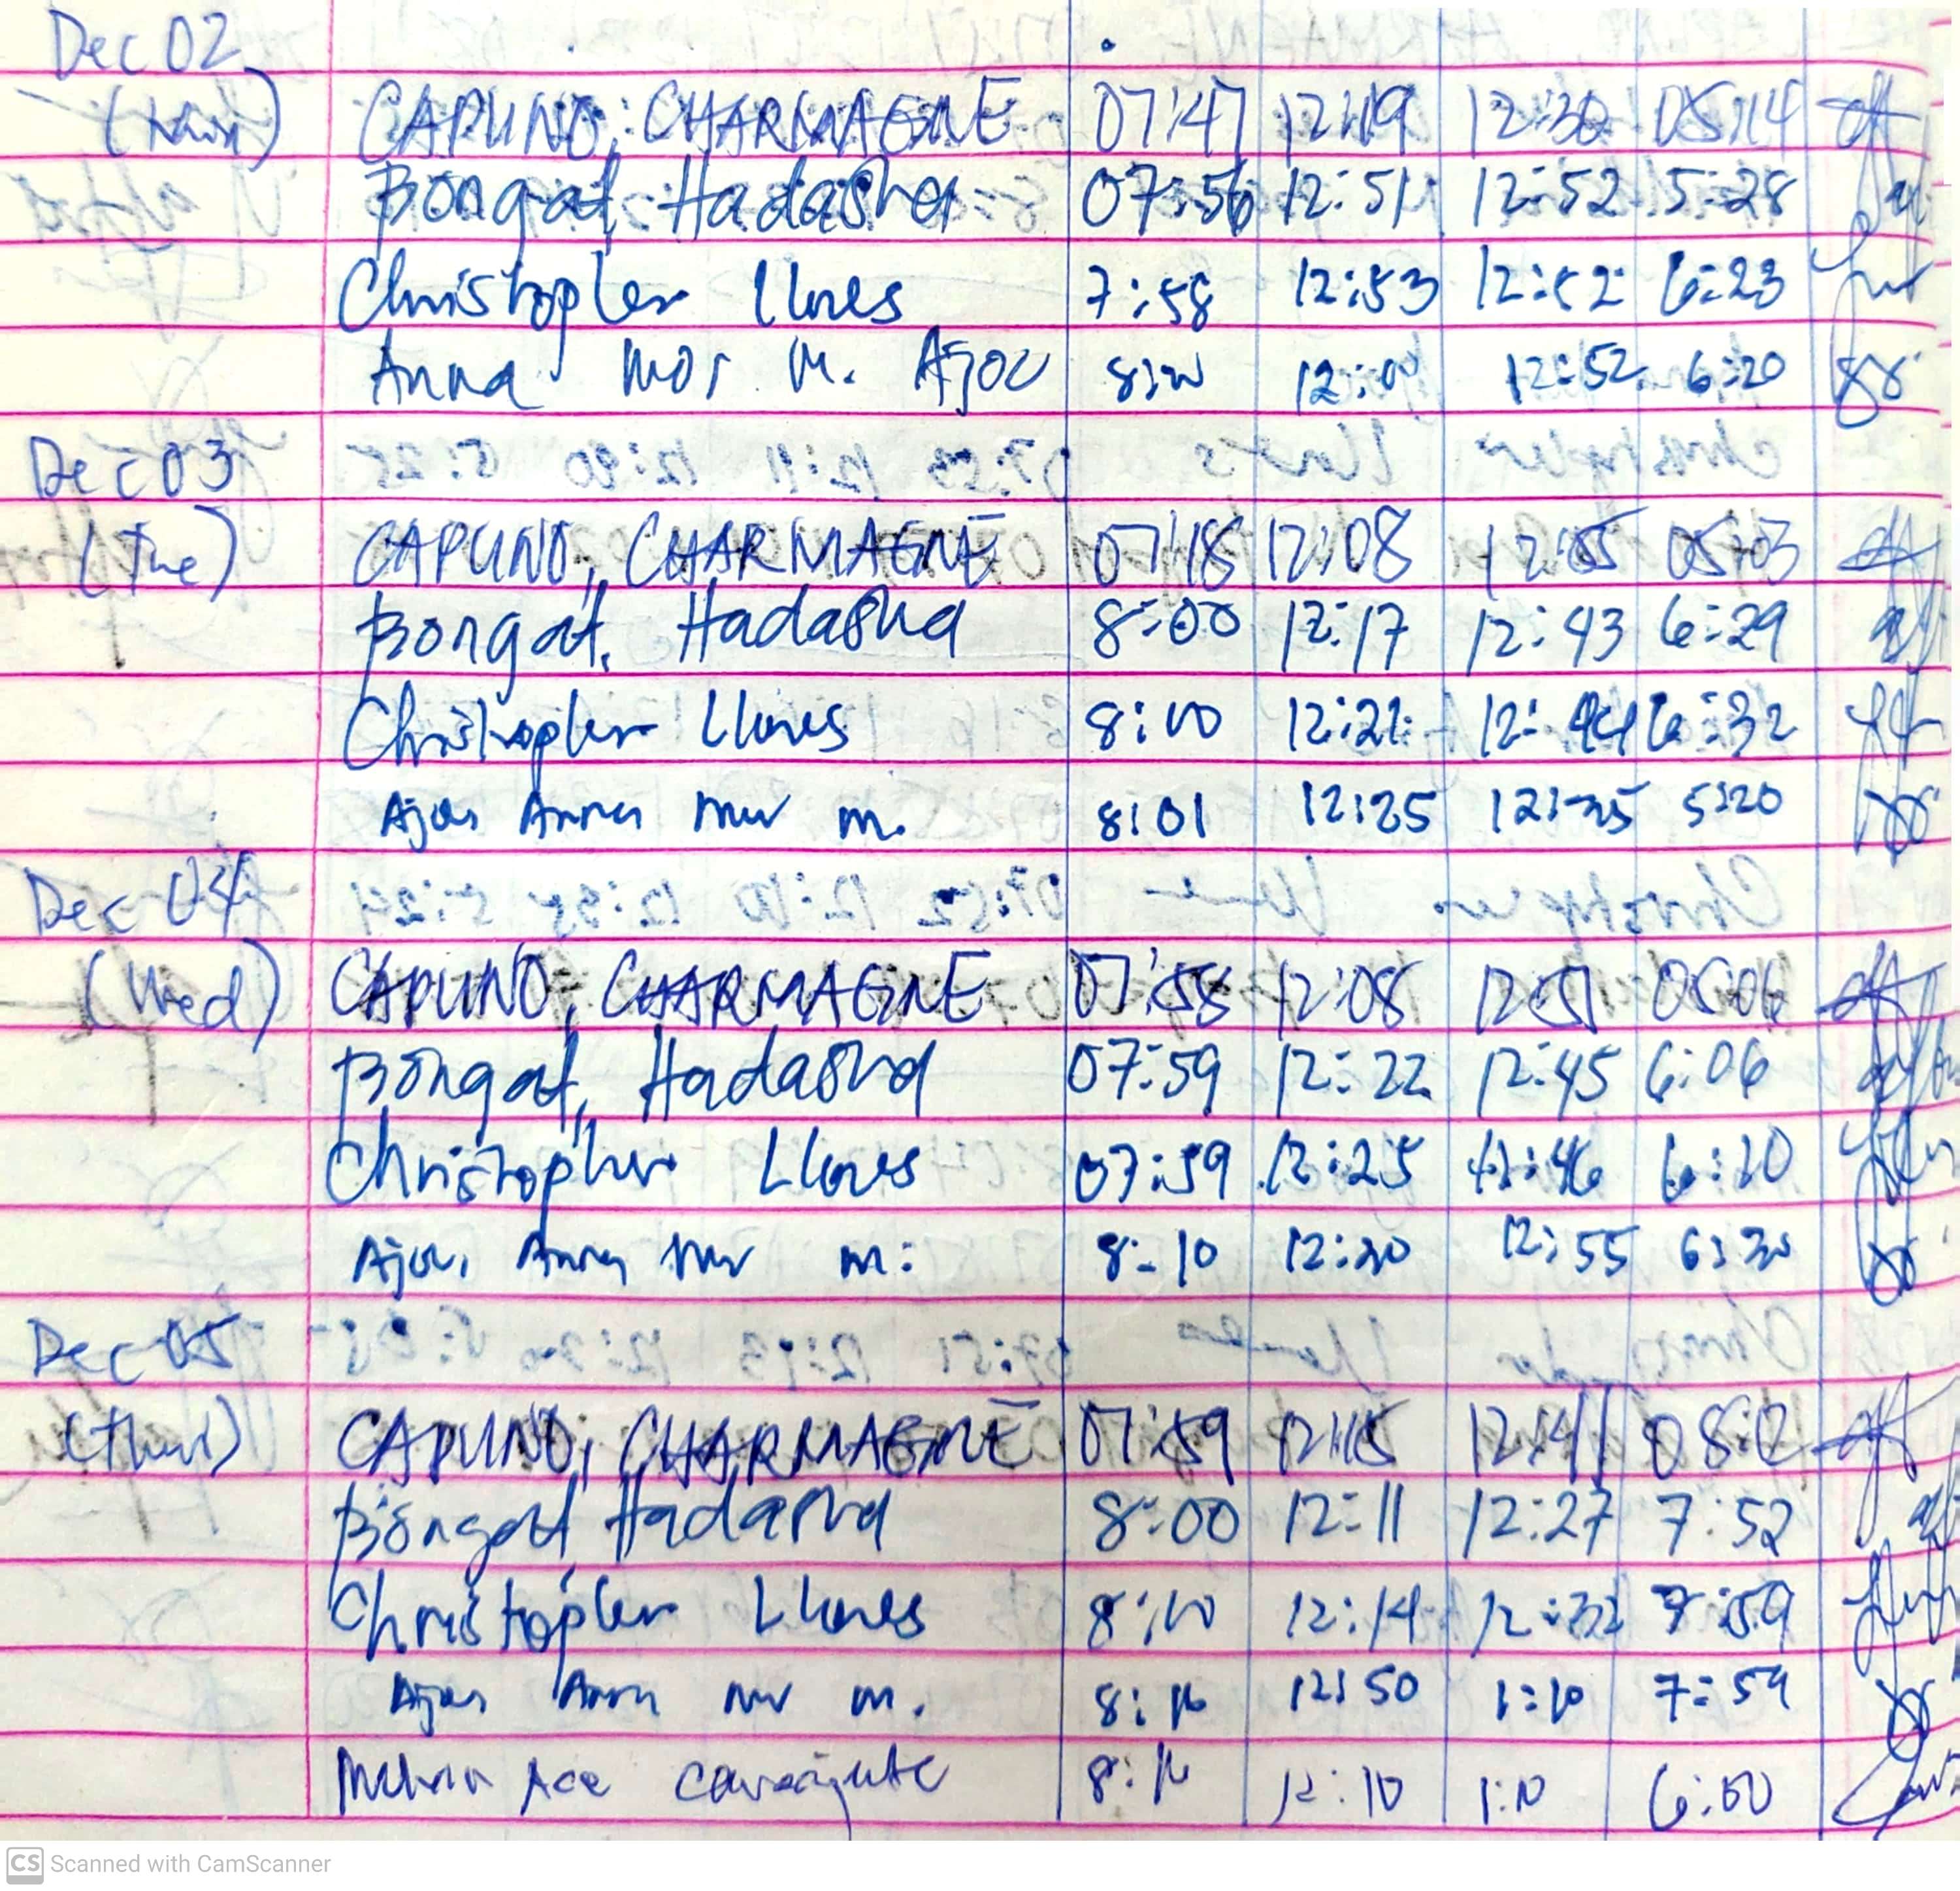 Dec 02
(Mon) CAPUNO, CHARMAGNE 07:47 12:19 12:30 05:14
Bongat, Hadasha 07:56 12:51 12:52 5:28
Christopher Llones 7:58 12:53 12:52 6:23
Anna Mor M. Ajoc 8:20 12:52 6:20
Dec 03
(Tue) CAPUNO, CHARMAGNE 07:18 12:08 12:55 05:03
Bongat, Hadasha 8:00 12:17 12:43 6:29
Christopher Llones 8:00 12:21 12:44 6:32
Anna m. 8:01 12:25 5:20
Dec 04
(Wed) CAPUNO, CHARMAGNE 07:58 12:08 12:51 05:06
Bongat, Hadasha 07:59 12:22 12:45 6:06
Christopher Llones 07:59 12:25 12:46 6:10
Anna m. 8:10 12:55 6:30
Dec 05
(Thur) CAPUNO, CHARMAGNE 07:59 12:15 12:41
Bongat, Hadasha 8:00 12:11 12:27 7:52
Christopher Llones 8:00 12:14 12:32 7:59
m. 12:50 1:10 7:59
Ace 12:10 1:10 6:00
CS Scanned with CamScanner